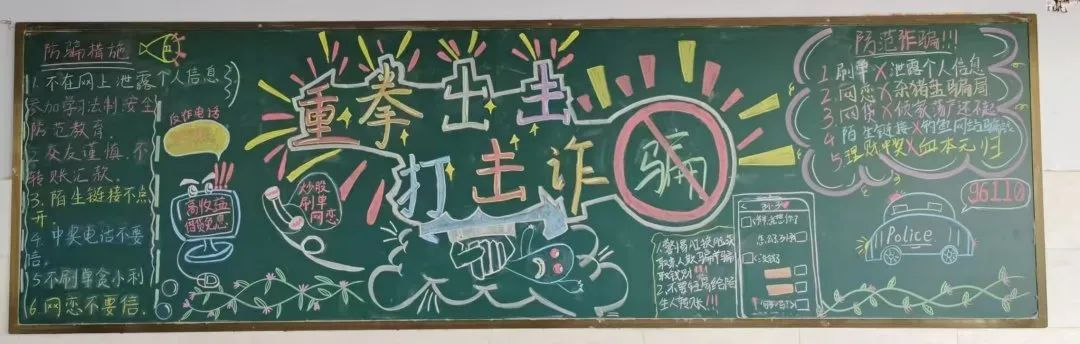 防骗措施
1. 不在网上泄露个人信息
参加学习法制安全
防范教育.
2. 交友谨慎.不
转账汇款.
3. 陌生链接不点
开.
4. 中奖电话不要
信.
5 不刷单贪小利
6. 网恋不要信.
反诈电话
高收益
炒股
刷单
网恋
重拳出击
打击诈
骗
2. 不要轻易给陌
生人转账!!!
防范诈骗!!!
1 刷单 X 泄露个人信息
2 网恋 X 杀猪生骗局
3 网贷 X 倾家荡产还不起
4 陌生链接 X 钓鱼网站骗
5 理财中奖 X 血本无归
96110
Police